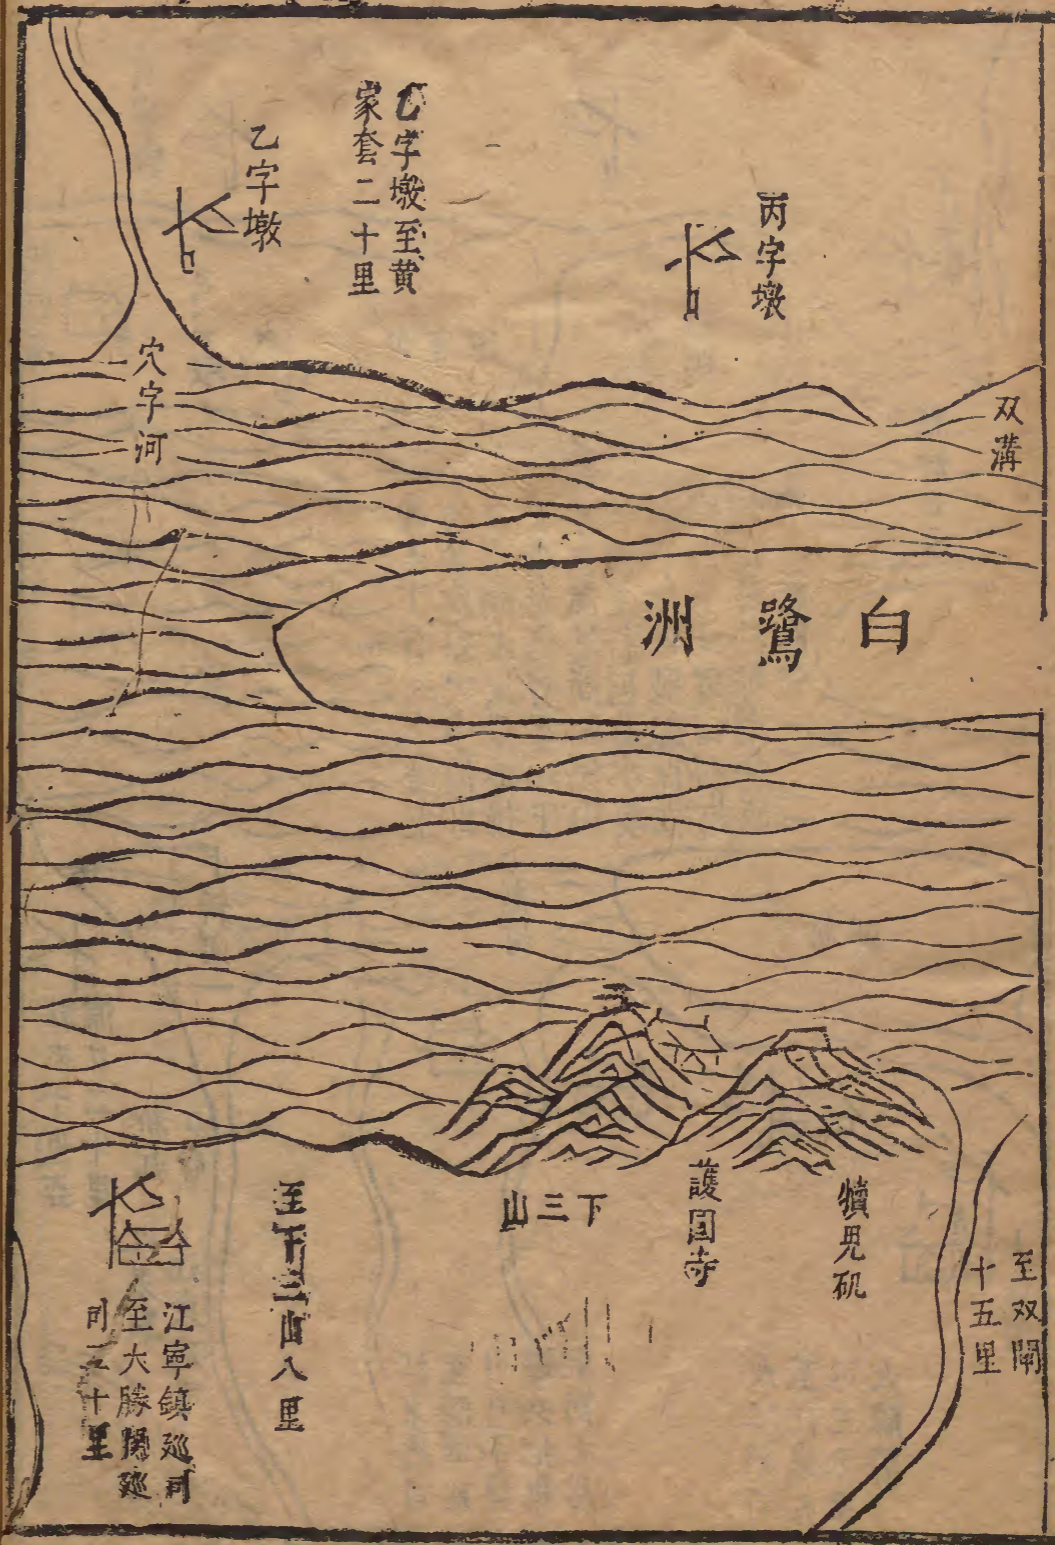 丙字墩
乙字墩至黄
家套二十里
乙字墩
双溝
穴字河
白鷺洲
至双閘
十五里
犢兕矶
護国寺
下三山
至下三山八里
江寧鎮廵司
至大勝関廵
司三十里